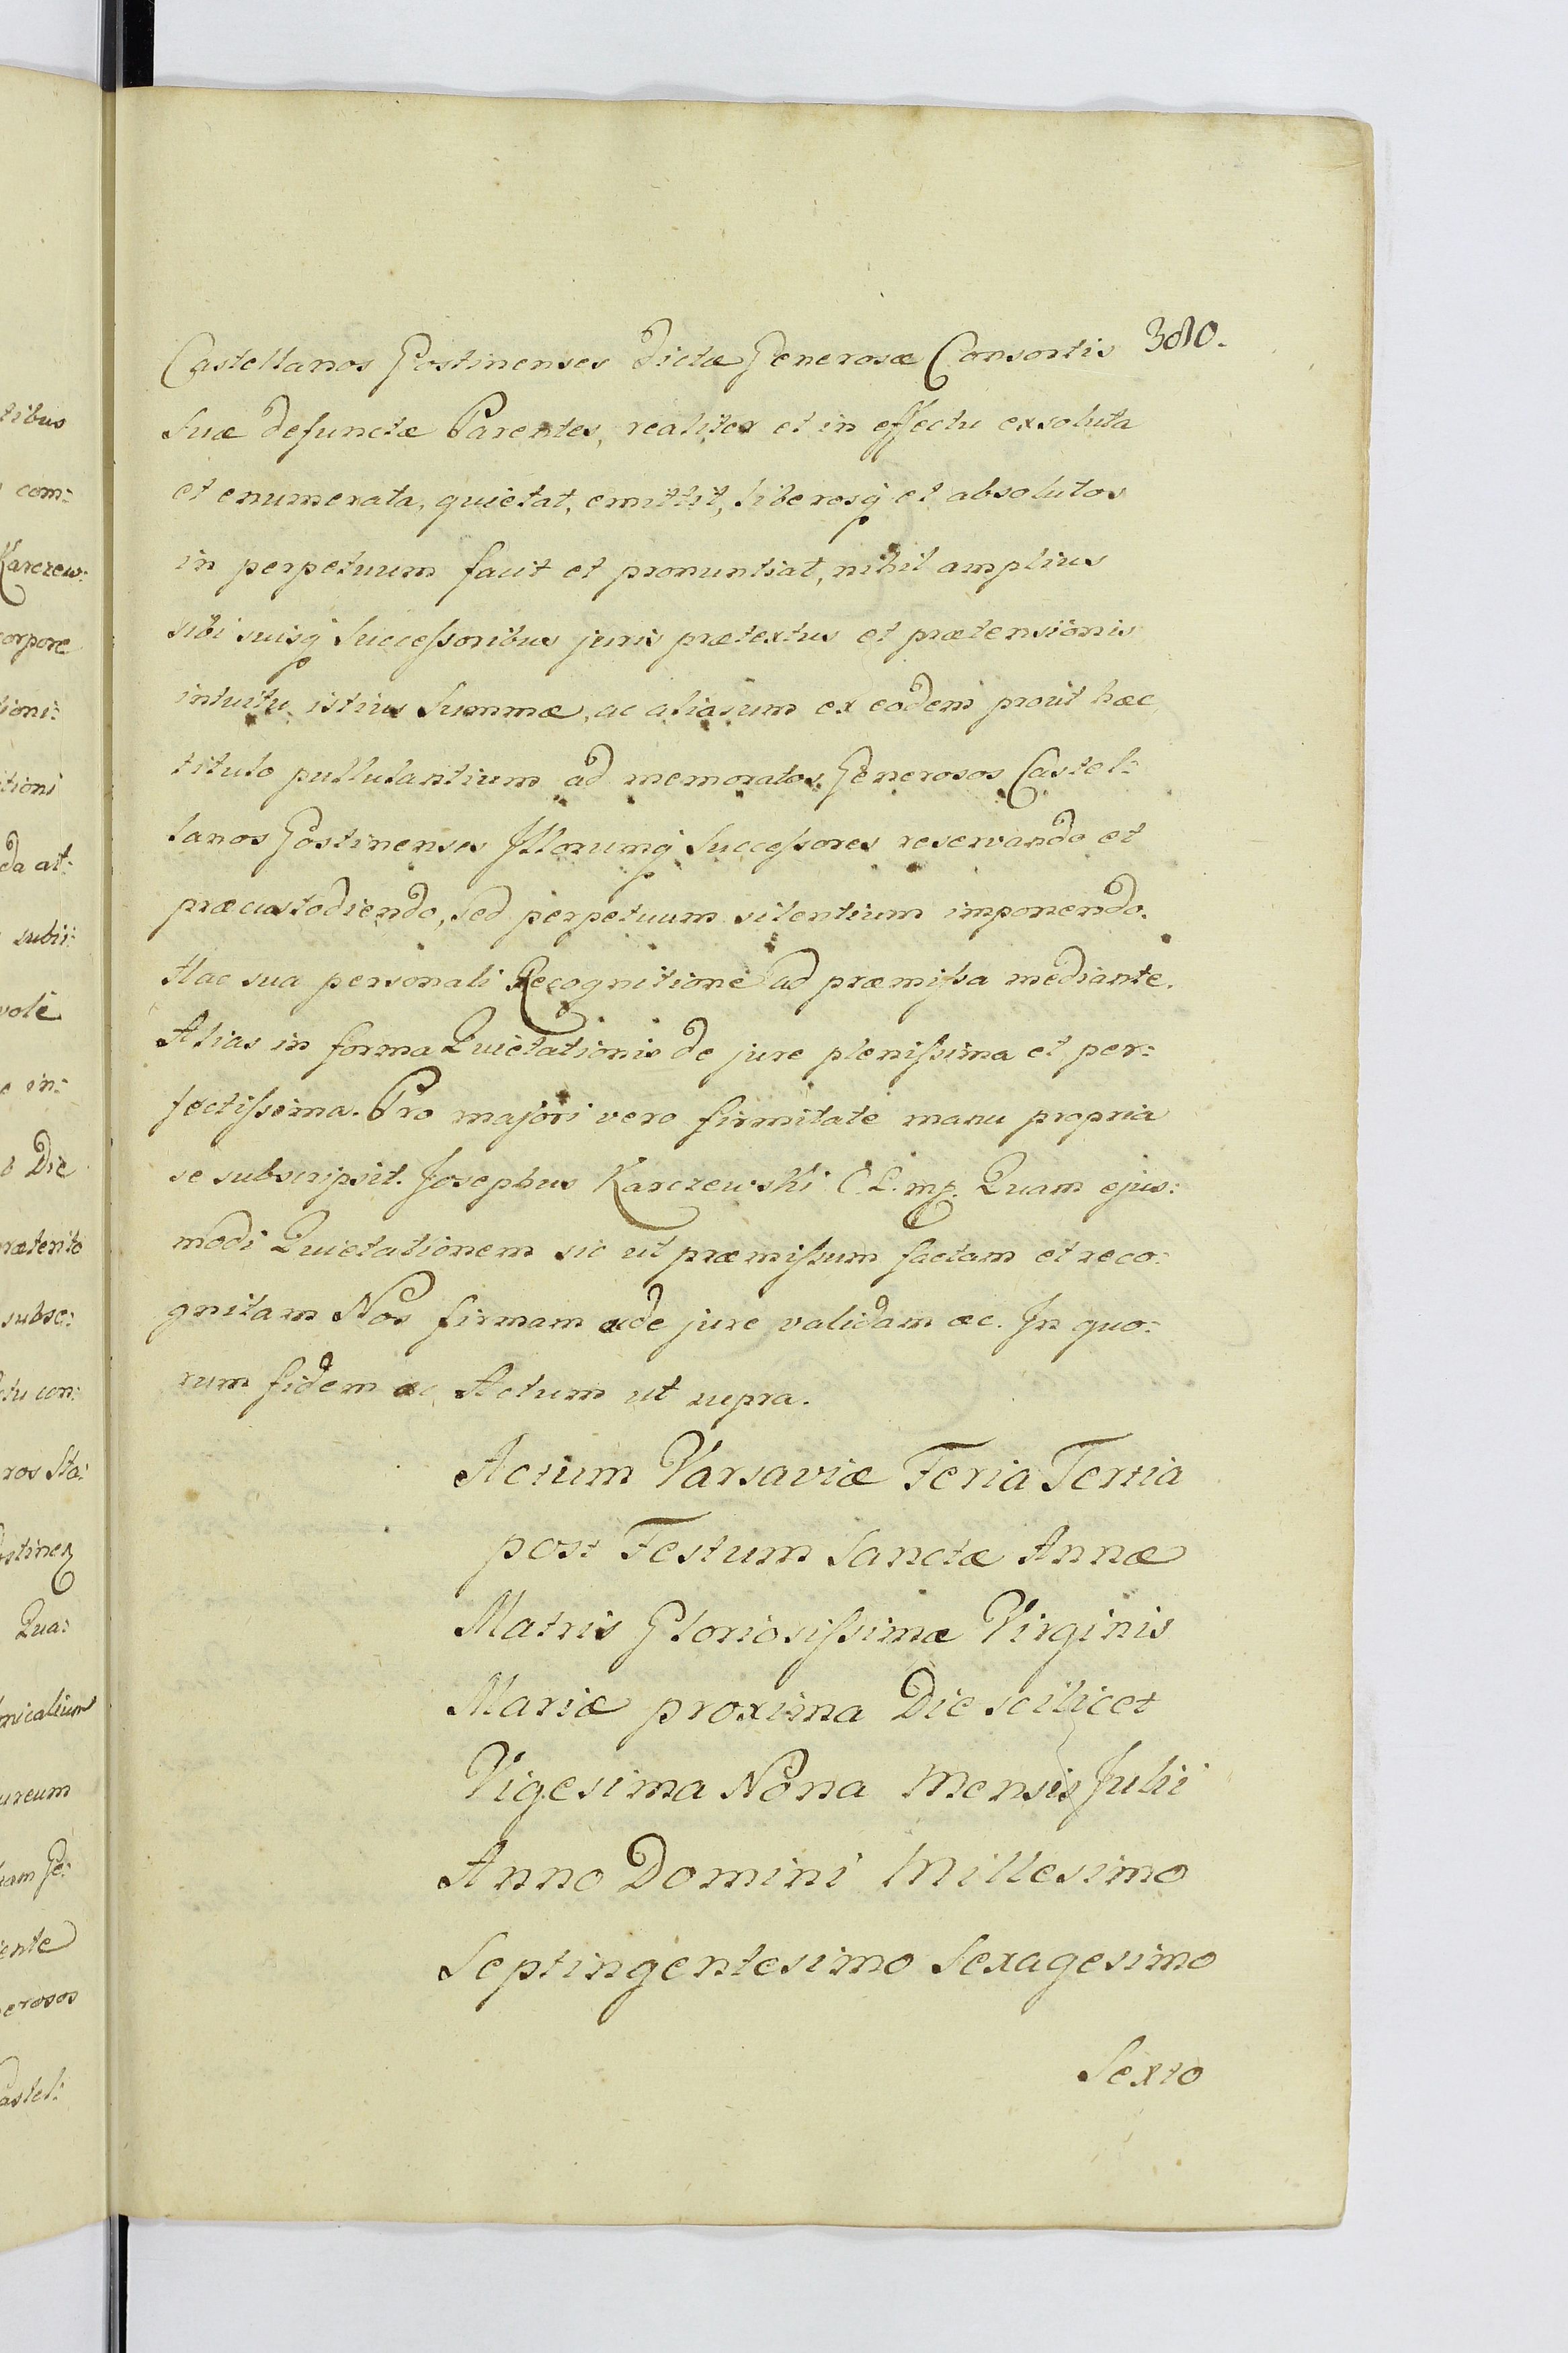 380.
Castellanos Gostinenses dictæ Generosæ Consortis
Suæ defunctæ Parentes, realiter et in effectu exsoluta
et enumerata, quietat, emittit, liberosq et absolutos
in perpetuum facit et pronuntiat, nihil amplius
sibi suisq Succeſsoribus juris prætextus et prætensionis
intuitu istius Summæ, ac aliarum ex eodem prout hæc
titulo pullulantium ad memoratos Generosos Castel:
lanos Gostinenses Illorumq Succeſsores reservando et
præcustodiendo, sed perpetuum silentium imponendo.
Hac sua personali Recognitione ad præmiſsa mediante.
Alias in forma Quietationis de jure pleniſsima et per:
fectiſsima. Pro majori vero firmitate manu propria
se subscripsit. Josephus Karczewski C. L. mp. Quam ejus:
modi Quietationem sic ut præmiſsum factam et reco:
gnitam Nos firmam ac de jure validam &c. In quo:
rum fidem &c Actum ut supra.
Actum Varsaviæ Feria Tertia
post Festum Sanctæ Annæ
Matris Gloriosiſsimæ Virginis
Mariæ proxima Die scilicet
Vigesima Nona Mensis Julii
Anno Domini Millesimo
Septingentesimo Sexagesimo
Sexto